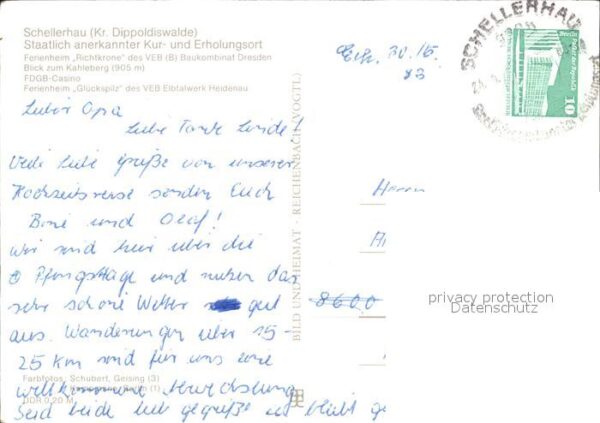 Schellerhau (Kr. Dippoldiswalde)
Staatlich anerkannter Kur- und Erholungsort
Ferienheim „Richtkrone" des VEB (B) Baukombinat Dresden
Blick zum Kahleberg (905 m)
FDGB-Casino
Ferienheim „Glückspilz" des VEB Elbtalwerk Heidenau
83
SCHELLERHAU
10
Lieber Opa
Liebe Tante Linde!
Viele liebe Grüße von unserer
Hochzeitsreise senden Euch
und Olaf!
Wir sind hier über die
Pfingsttage und nutzen das
sehr schöne Wetter gut
aus. Wanderungen über 15-
25 km sind für uns eine
willkommene Abwechslung
Seid beide lieb gegrüßt und bleibt ge
BILD UND HEIMAT · REICHENBACH (VOGTL)
Herrn
8600
Farbfotos: Schubert, Geising (3)
(1)
DDR 0,20 M
privacy protection
Datenschutz